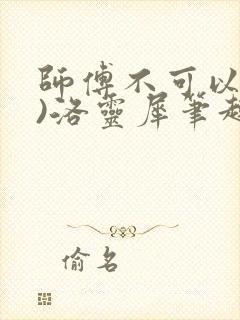 師傅不可以
)洛靈犀筆趣
偷名